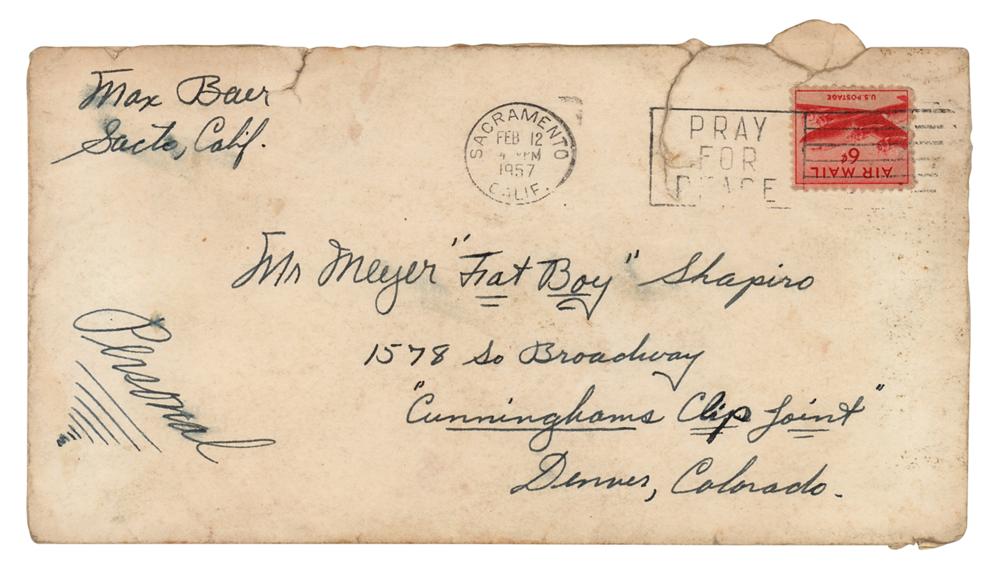 Max Baer
Sacto, Calif.
SACRAMENTO
FEB 12
PM
1957
CALIF.
PRAY
FOR
PEACE
U.S. POSTAGE
6¢
AIR MAIL
Mr Meyer "Fat Boy" Shapiro
1578 So Broadway
"Cunninghams Clip Joint"
Denver, Colorado.
Personal